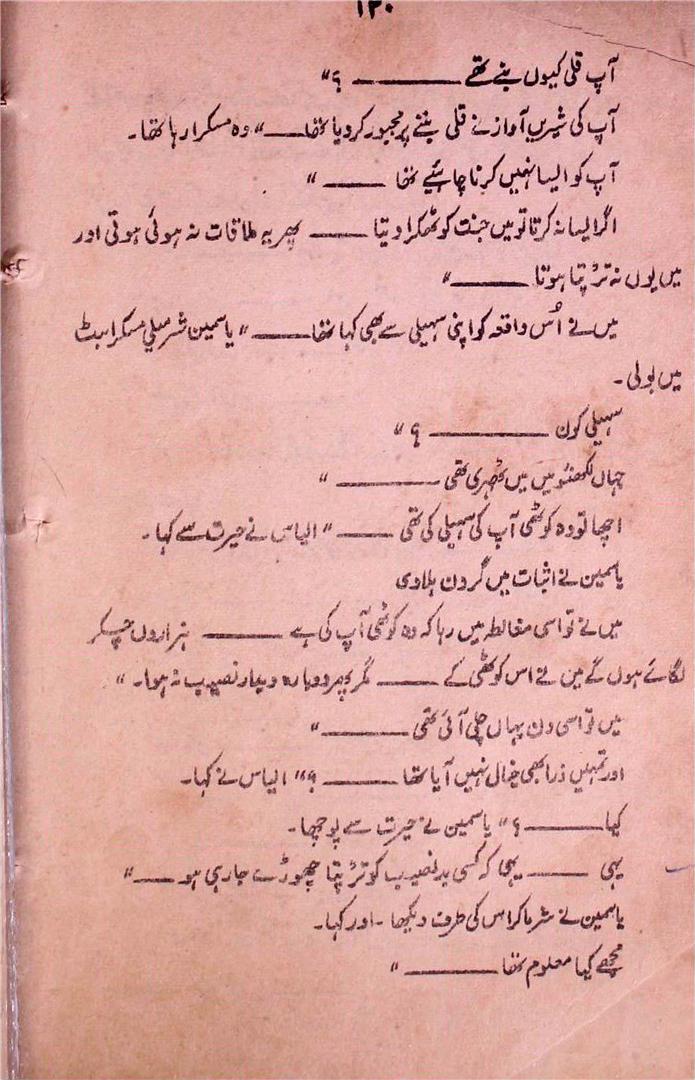 ۱۲۰
آپ قلی کیوں بنے تھے ــــــــ ؟"
آپ کی شیریں آواز نے قلی بننے پر مجبور کر دیا تھا ــــــ" وہ مسکرا رہا تھا۔
آپ کو ایسا نہیں کرنا چاہیئے تھا ــــــ "
اگر ایسا نہ کرتا تو میں جنت کو ٹھکرا دیتا ــــــ پھر یہ ملاقات نہ ہوئی ہوتی اور
میں یوں نہ تڑپتا ہوتا ــــــــ "
میں نے اُس واقعہ کو اپنی سہیلی سے بھی کہا تھا ــــــ" یاسمین شرمیلی مسکراہٹ
میں بولی۔
سہیلی کون ــــــــ ؟ "
جہاں لکھنئو میں میں ٹھہری تھی ــــــــ "
اچھا تو وہ کوٹھی آپ کی سہیلی کی تھی ــــــ" الیاس نے حیرت سے کہا۔
یاسمین نے اثبات میں گردن ہلا دی
میں نے تو اسی مغالطہ میں رہا کہ وہ کوٹھی آپ کی ہے ــــــــ ہزاروں چکر
لگائے ہوں گے میں نے اس کوٹھی کے ــــــ مگر پھر دوبارہ دیدار نصیب نہ ہوا۔ "
میں تو اسی دن یہاں چلی آئی تھی ــــــــ "
اور تمہیں ذرا بھی خیال نہیں آیا تھا ــــــــ ؟" الیاس نے کہا۔
کیا ــــــــ ؟" یاسمین نے حیرت سے پوچھا۔
یہی ــــــ یہی کہ کسی بد نصیب کو تڑپتا چھوڑے جا رہی ہو ــــــ "
یاسمین نے شرما کر اس کی طرف دیکھا ۔ اور کہا۔
مجھے کیا معلوم تھا ــــــــ "